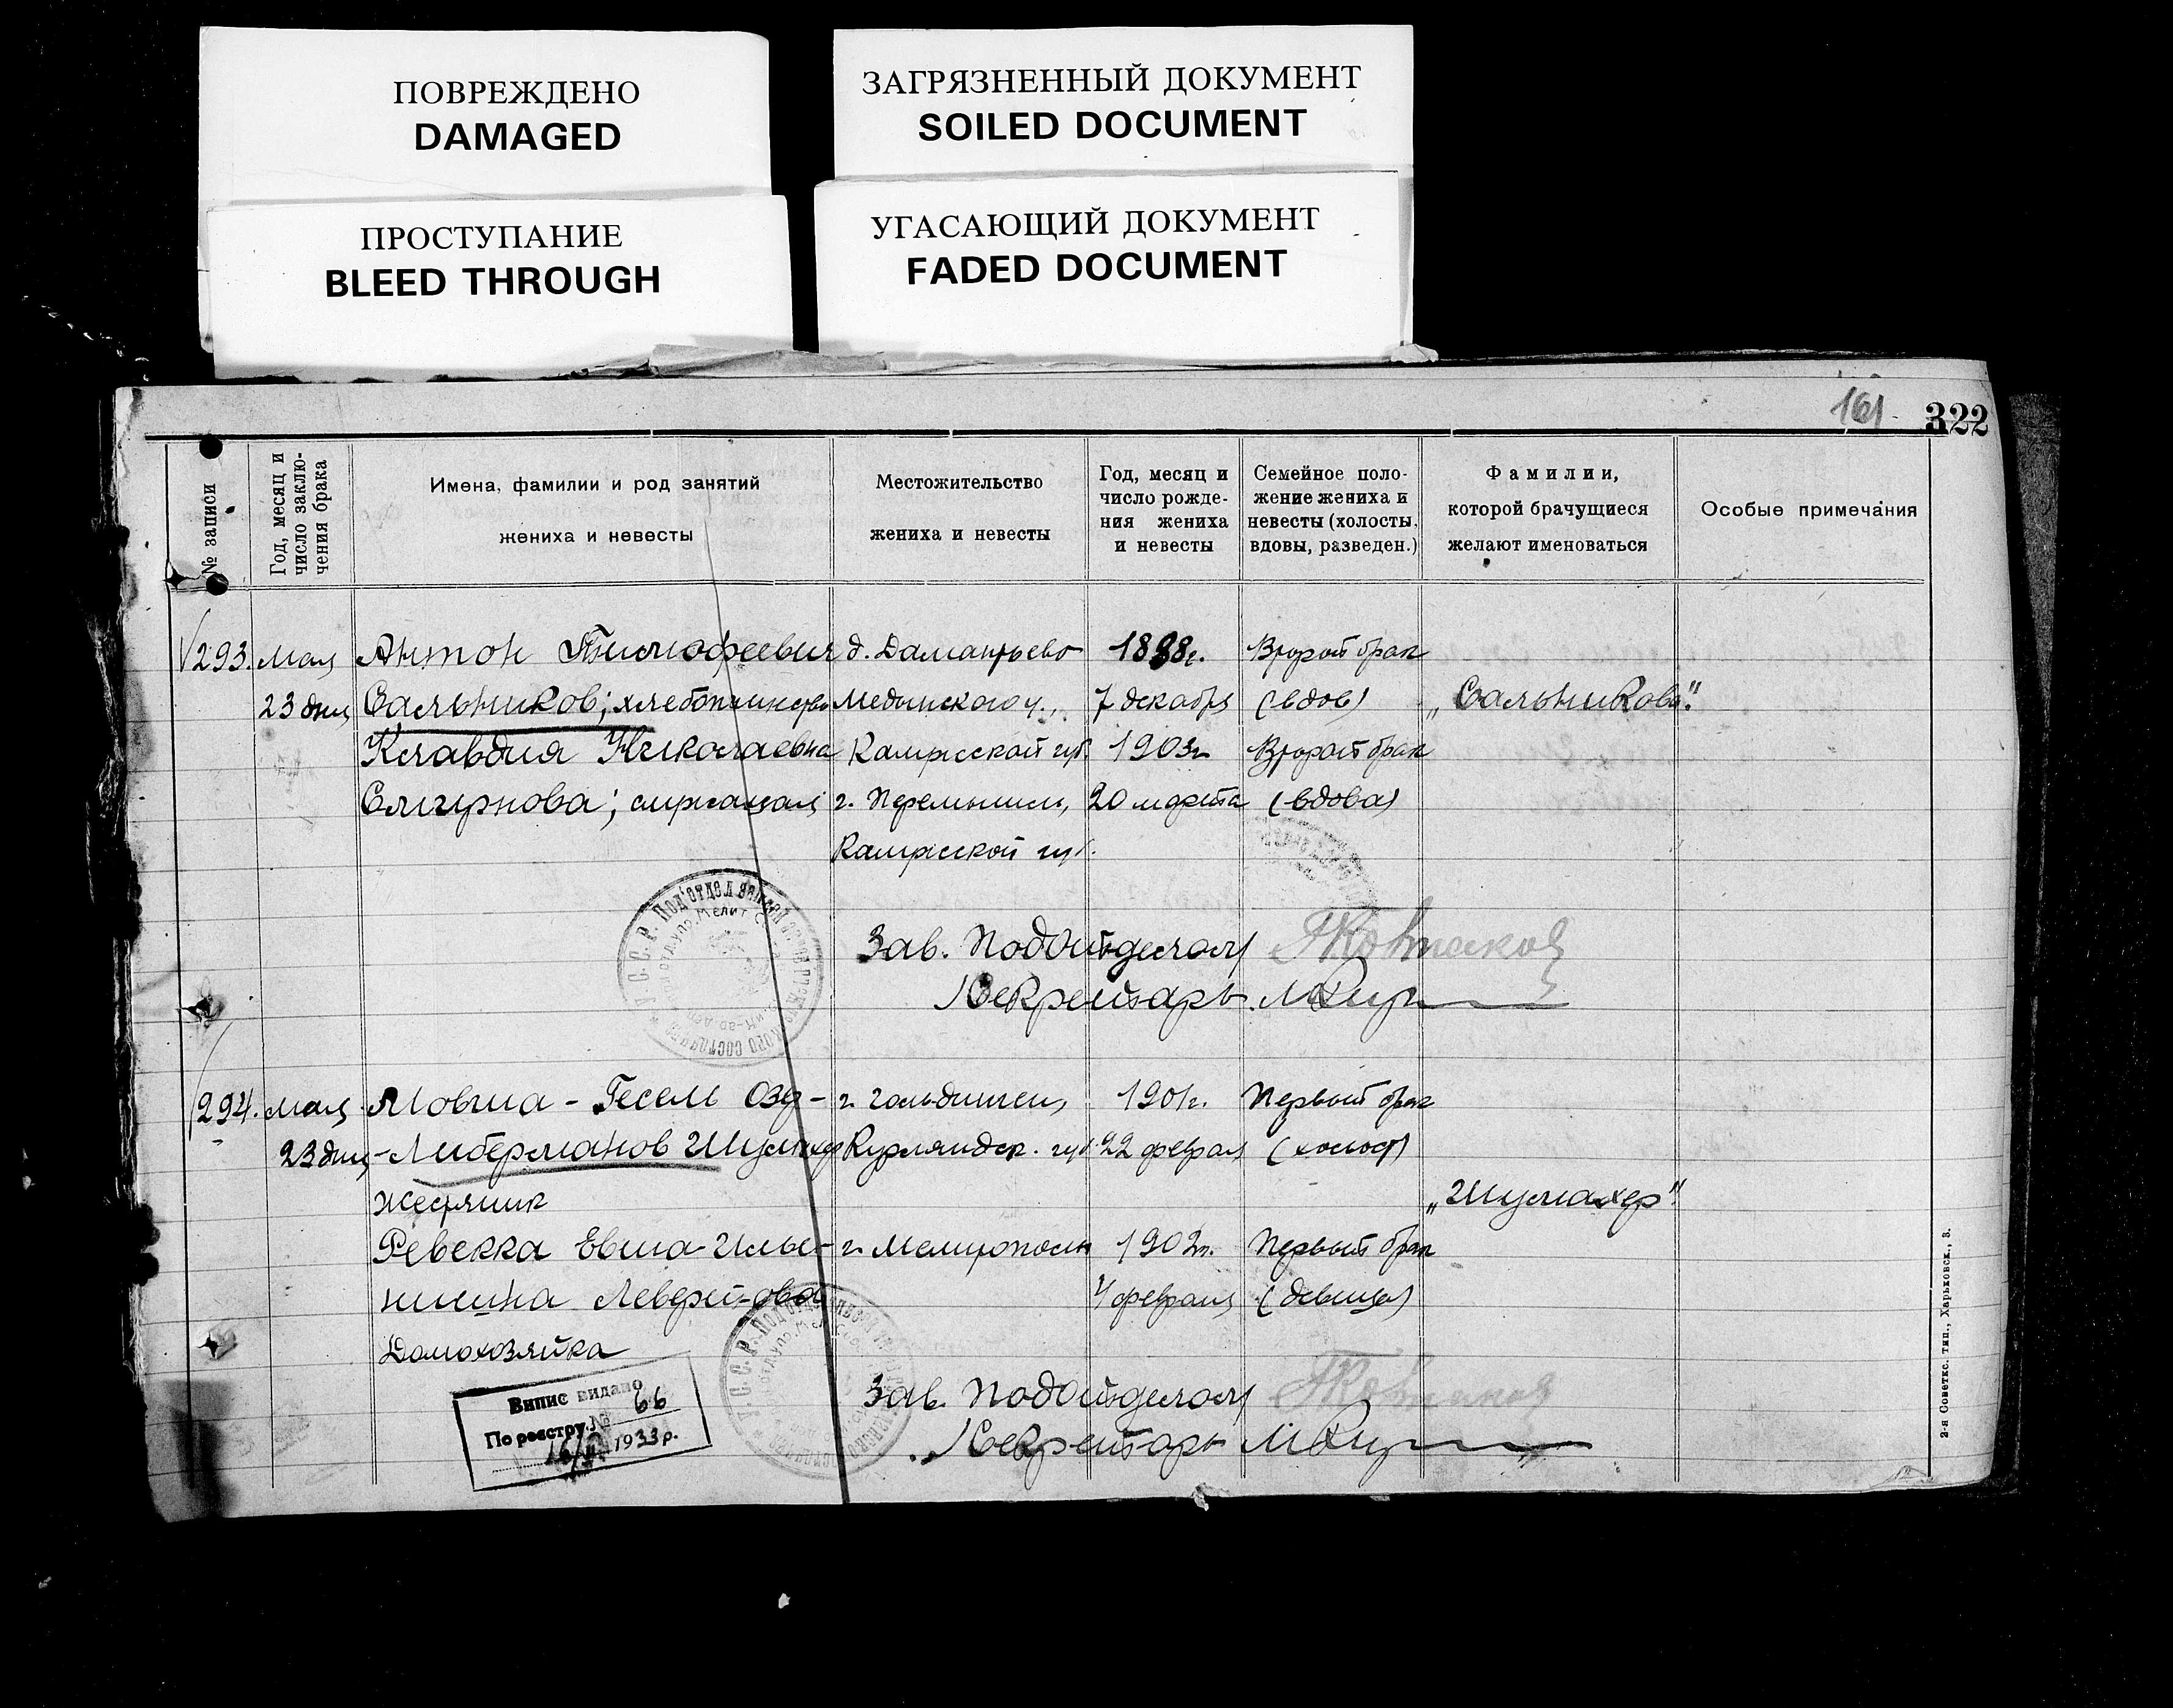 ПОВРЕЖДЕНО
DAMAGED
ЗАГРЯЗНЕННЫЙ ДОКУМЕНТ
SOILED DOCUMENT
ПРОСТУПАНИЕ
BLEED THROUGH
УГАСАЮЩИЙ ДОКУМЕНТ
FADED DOCUMENT
161
322
№ записи
Год, месяц и
число заклю-
чения брака
Имена, фамилии и род занятий
жениха и невесты
Местожительство
жениха и невесты
Год, месяц и
число рожде-
ния жениха
и невесты
Семейное поло-
жение жениха и
невесты (холосты,
вдовы, разведен.)
Фамилии,
которой брачущиеся
желают именоваться
Особые примечания
293. мая Антон Тимофеевич д. 1888г. Второй брак
23 дня Сальников; Медынского у., 7 декабря (вдов) „Сальниковы"
Клавдия Николаевна Калужской губ. 1903г. Второй брак
Смирнова; служащая г. Перемышль, 20 марта (вдова)
Калужской губ.
Зав. Подотделом
Секретарь
294. мая Мовша-Гесель г. Гольдинген, 1901г. Первый брак
23 дня Либерманов Шумахер Курляндск. губ. 22 февраля (холост)
жестяник „Шумахер"
Ревекка г. Мелитополь 1902г. Первый брак
февраля (девица)
Домохозяйка
Зав. Подотделом
Секретарь
Випис видано
По реєстру № 66
1933 р.
2-я Советск. тип., Харьковск., 3.